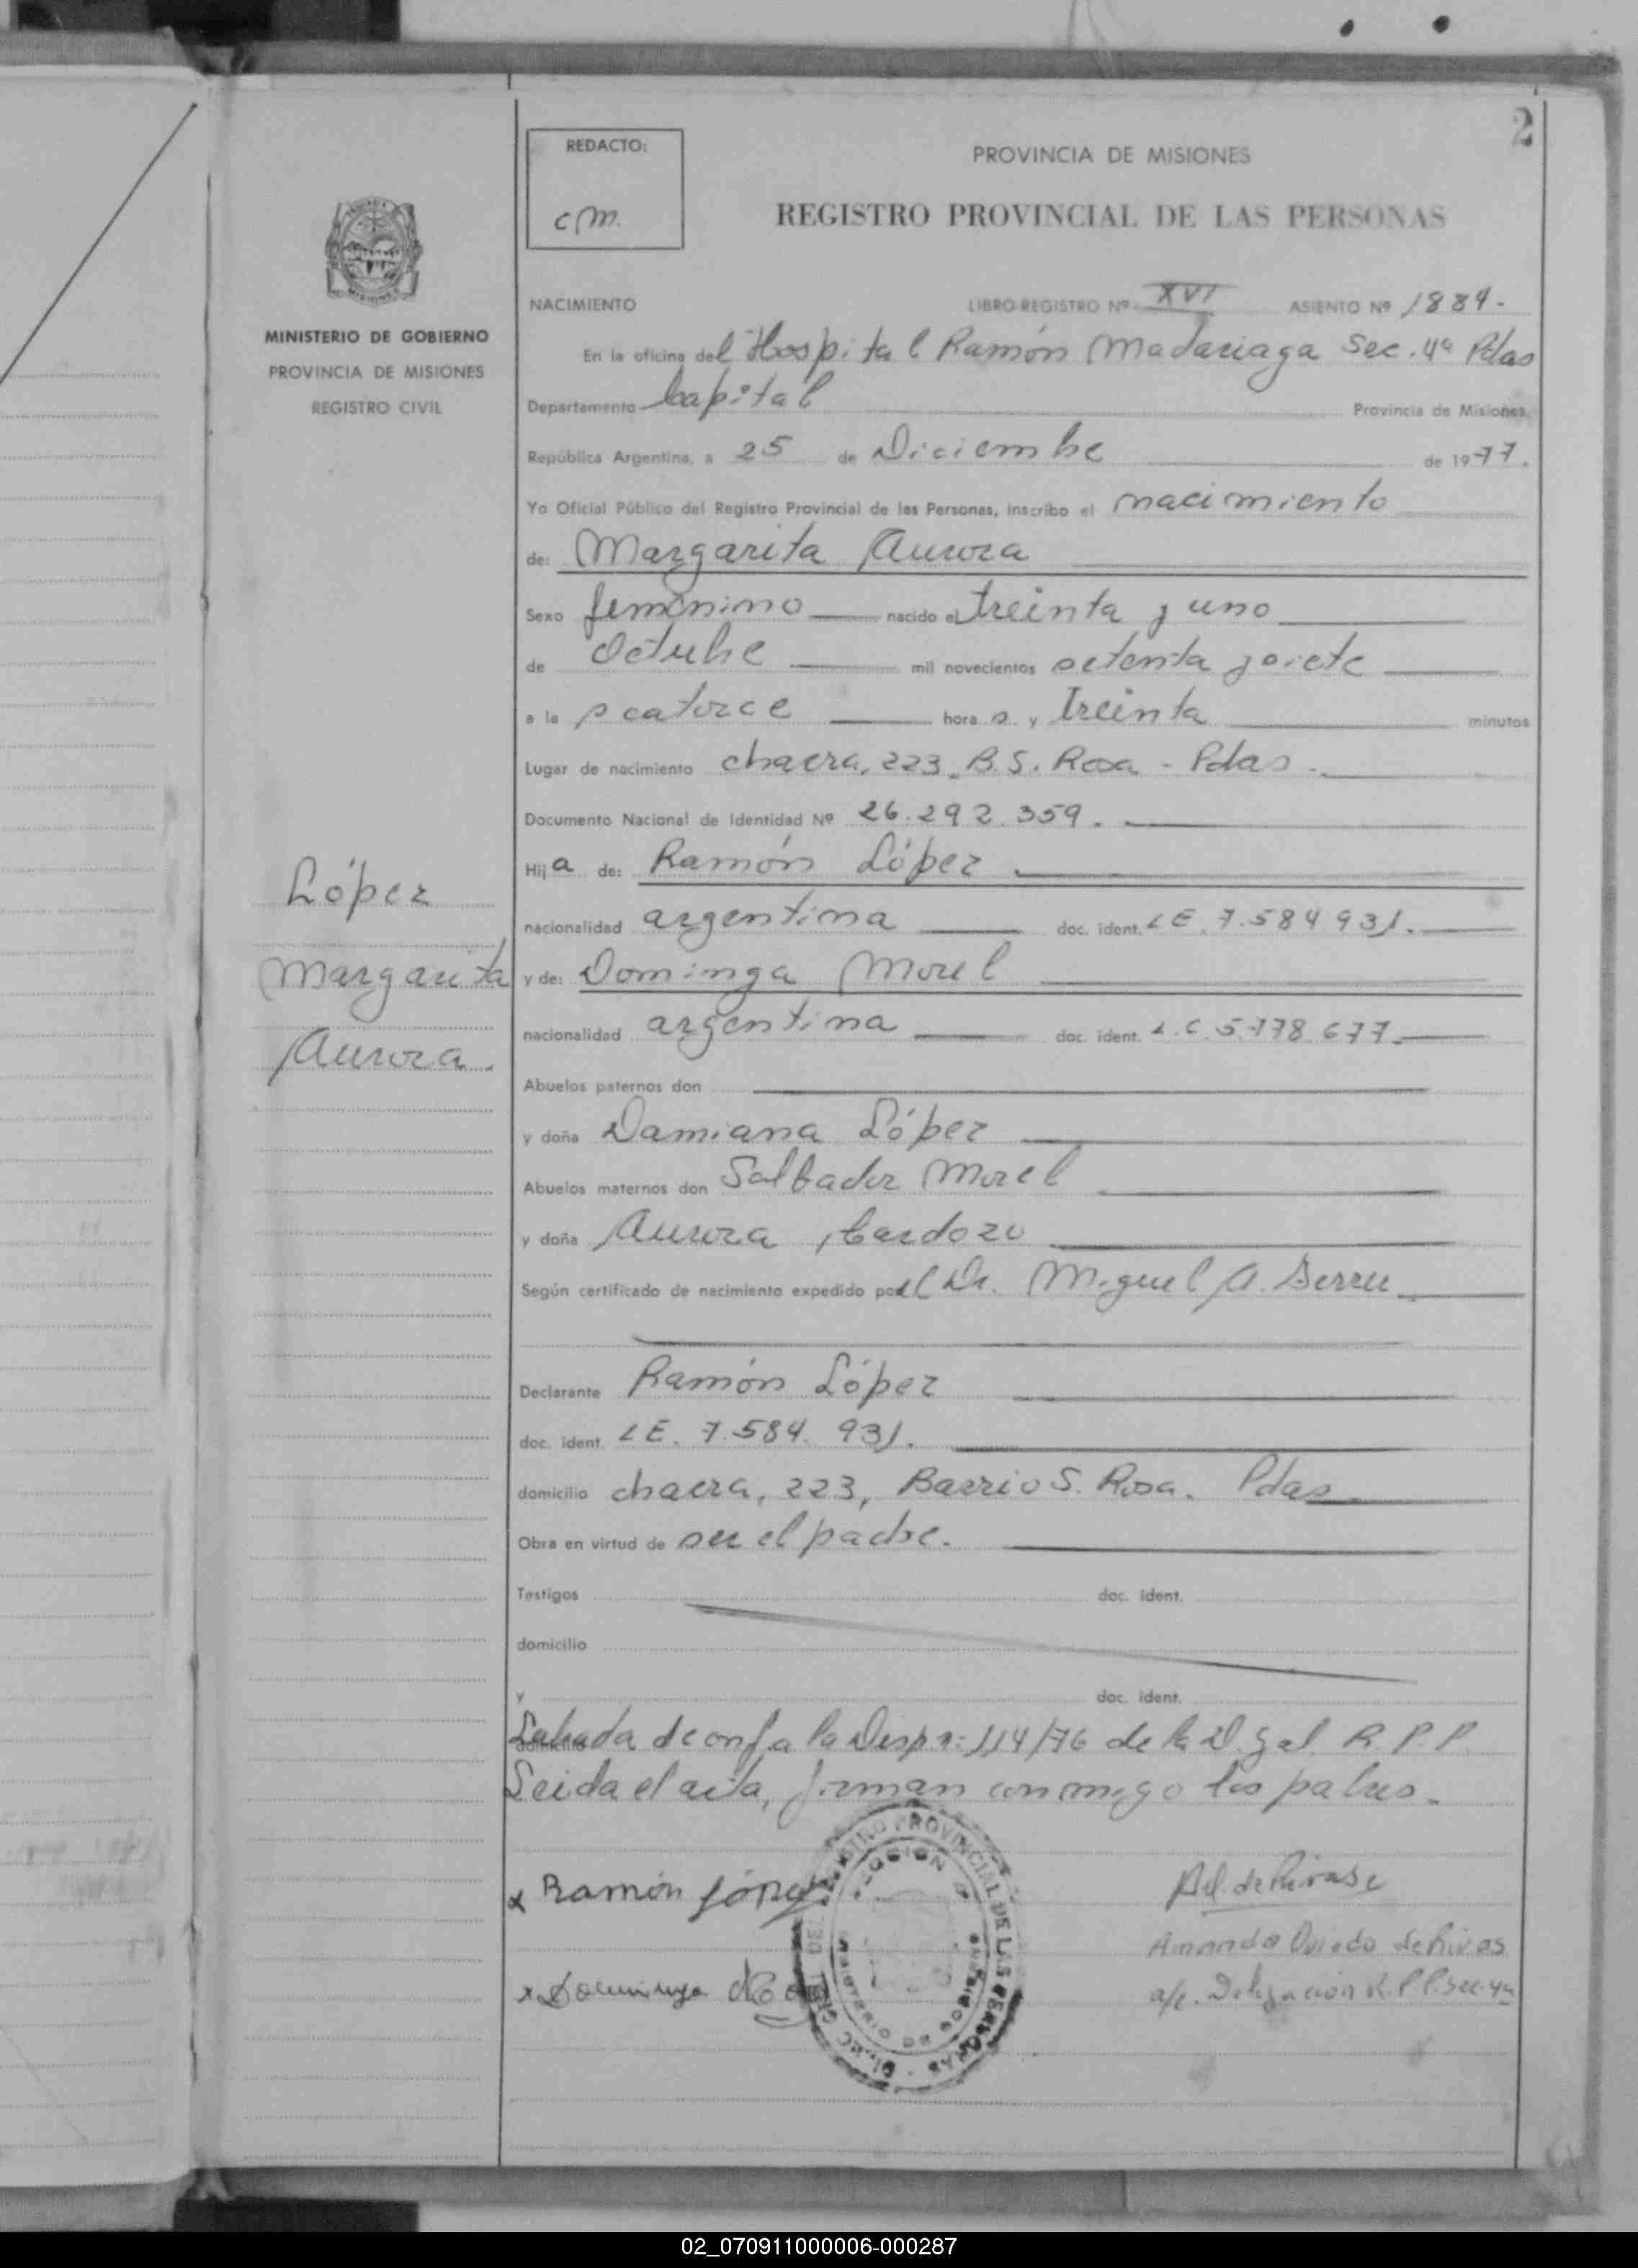 2
REDACTO:
CM.
PROVINCIA DE MISIONES
REGISTRO PROVINCIAL DE LAS PERSONAS
MINISTERIO DE GOBIERNO
PROVINCIA DE MISIONES
REGISTRO CIVIL
López
Margarita
Aurora.
NACIMIENTO LIBRO-REGISTRO Nº XVI ASIENTO Nº 1884.
En la oficina del Hospital Ramón Madariaga Sec. 4ª Pdas
Departamento Capital Provincia de Misiones,
República Argentina, a 25 de Diciembre de 1977.
Yo Oficial Público del Registro Provincial de las Personas, inscribo el nacimiento
de: Margarita Aurora
Sexo femenino nacido el treinta y uno
de Octubre mil novecientos setenta y siete
a la s catorce hora s y treinta minutos
Lugar de nacimiento chacra, 223 B. S. Rosa - Pdas.
Documento Nacional de Identidad Nº 26.292.359.
Hija de: Ramón López
nacionalidad argentina doc. ident. LE. 7.584.931.
y de: Dominga Morel
nacionalidad argentina doc. ident. L.C. 5.778.677.
Abuelos paternos don
y doña Damiana López
Abuelos maternos don Salbador Morel
y doña Aurora Cardozo
Según certificado de nacimiento expedido por el Dr. Miguel A.
Declarante Ramón López
doc. ident. LE. 7.584.931.
domicilio chacra, 223, Barrio S. Rosa. Pdas
Obra en virtud de ser el padre.
Testigos doc. ident.
domicilio
y doc. ident.
domicilio
Labrada de conf. a la Disp. n: 114/76 de la D. Gal. R.P.P.
Leida el acta, firman conmigo los padres.
x Ramón López
x Dominga
Amanda Oviedo de Rivas
a/c. Delegación R.P.P. Sec. 4ª
02_070911000006-000287